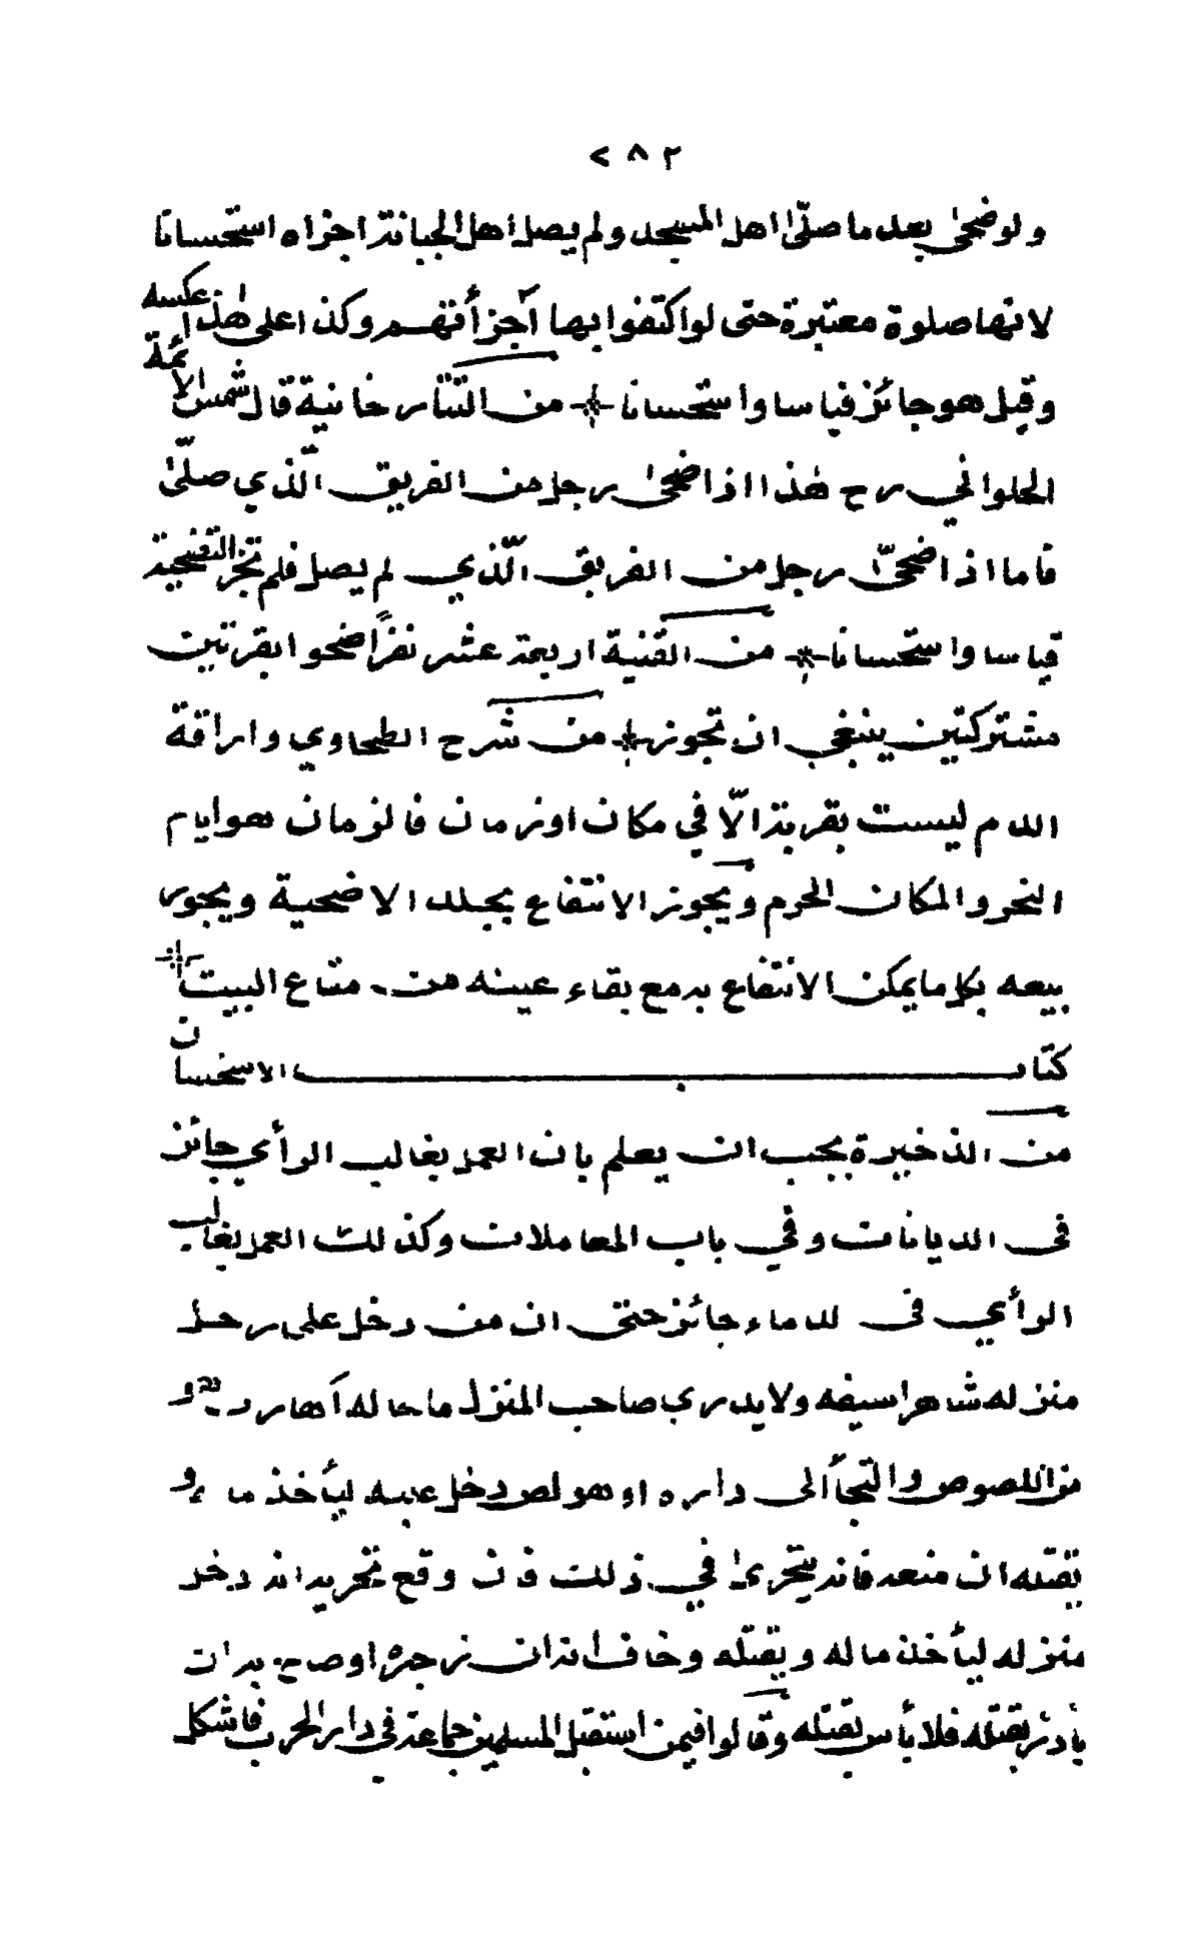 ٢٨٢
ولو ضحى بعد ما صلّى اهل المسجد ولم يصل اهل الجبانة اجزاه استحسانا
لانها صلوة معتبرة حتى لو اكتفوا بها أجزأتهم وكذا على هذا عكسه
وقيل هو جائز قياسا واستحسانا من التتارخانية قال شمس الائمة
الحلواني رح هذا اذا ضحى رجل من الفريق الّذي صلّى
فاما اذا ضحىّ رجل من الفريق الّذي لم يصل فلم تجز التضحية
قياسا واستحسانا من القنية اربعة عشر نفرًا ضحوا بقرتين
مشتركتين ينبغي ان تجوز من شرح الطحاوي واراقة
الدم ليست بقربة الّا في مكان او زمان فالزمان هو ايام
النحر والمكان الحرم ويجوز الانتفاع بجلد الاضحية ويجوز
بيعه بكل ما يمكن الانتفاع به مع بقاء عينه من متاع البيت
كتاب الاستحسان
من الذخيرة يجب ان يعلم بان العمل بغالب الرأي جائز
فى الديانات وفي باب المعاملات وكذلك العمل بغالب
الرأي فى الدماء جائز حتى ان من دخل على رجل
منزله شاهرا سيفه ولا يدري صاحب المنزل ما حاله أهارب هو
من اللصوص والتجأ الى داره او هو لص دخل عليه ليأخذ ماله و
يقتله ان منعه فانه يتحرى في ذلك فان وقع تحريه انه دخل
منزله ليأخذ ماله ويقتله وخاف انه ان زجره او صاح به ان
يأدر بقتله فلا بأس بقتله وقالوا فيمن استقبل المسلمين جماعة في دار الحرب فاشكل